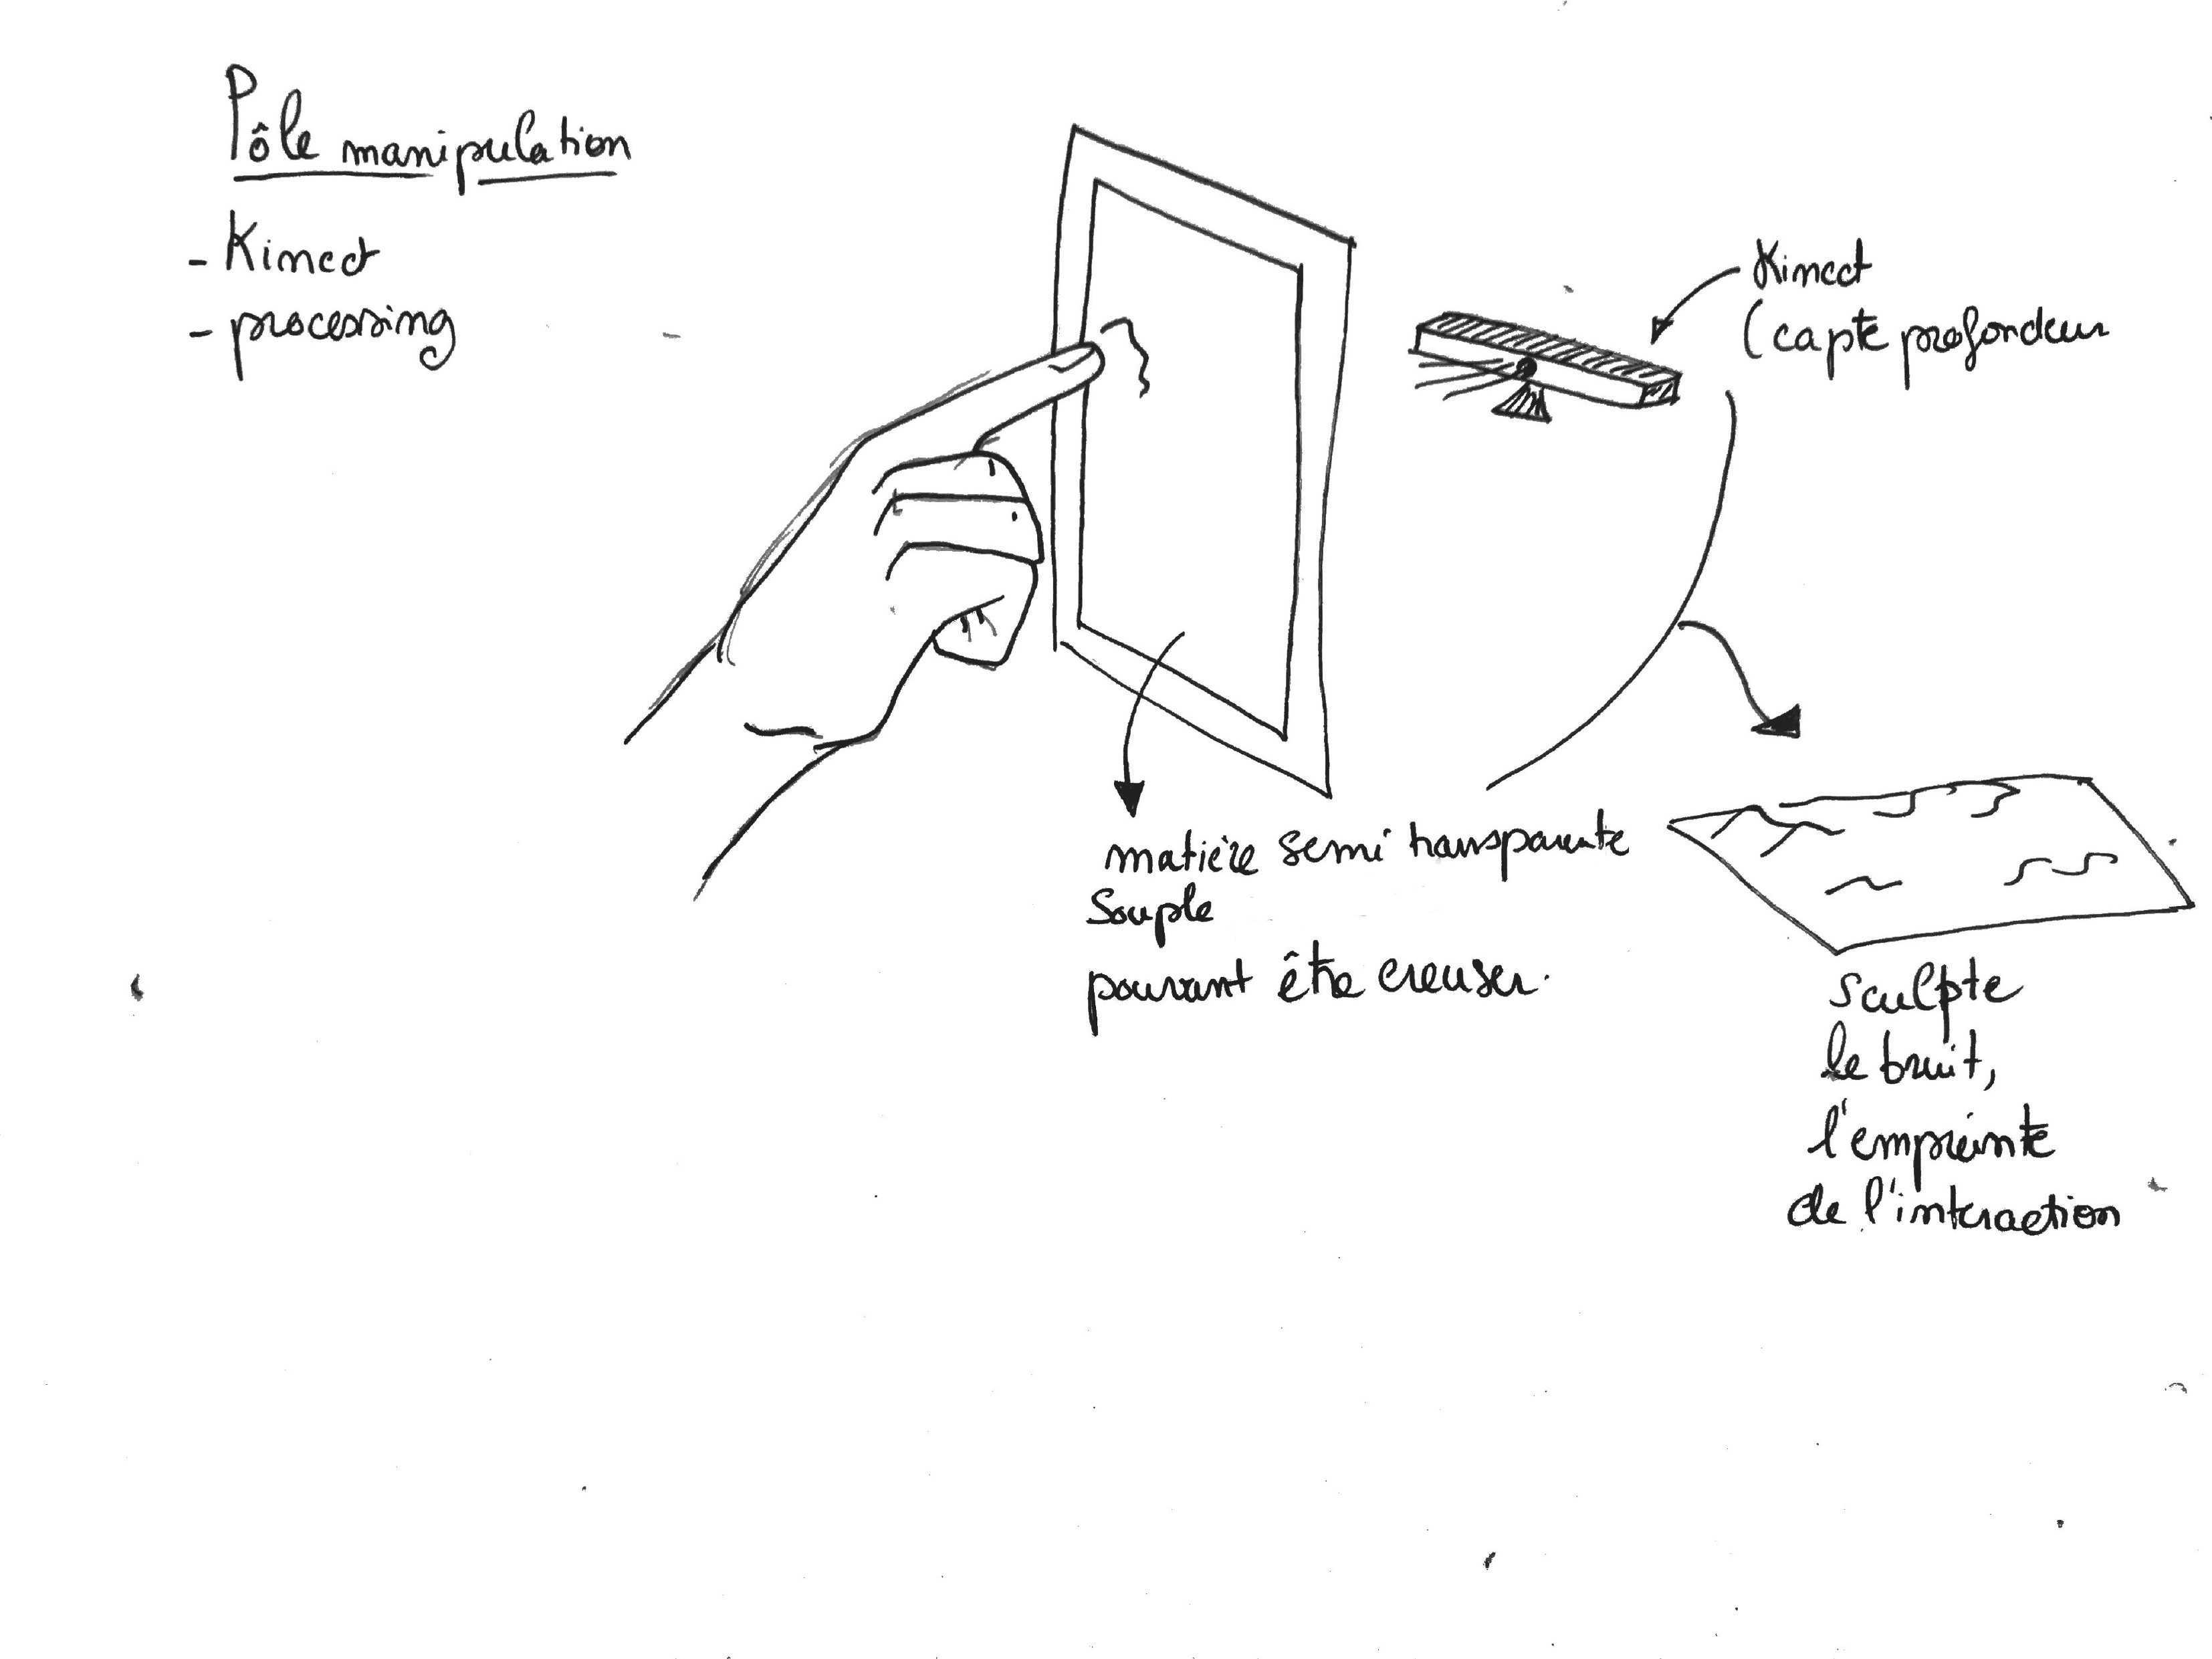 Pôle manipulation
- Kinect
- processing
Kinect
(capte profondeur
matière semi transparente
Souple
pouvant être creuser.
Sculpte
le bruit,
l'empreinte
de l'interaction